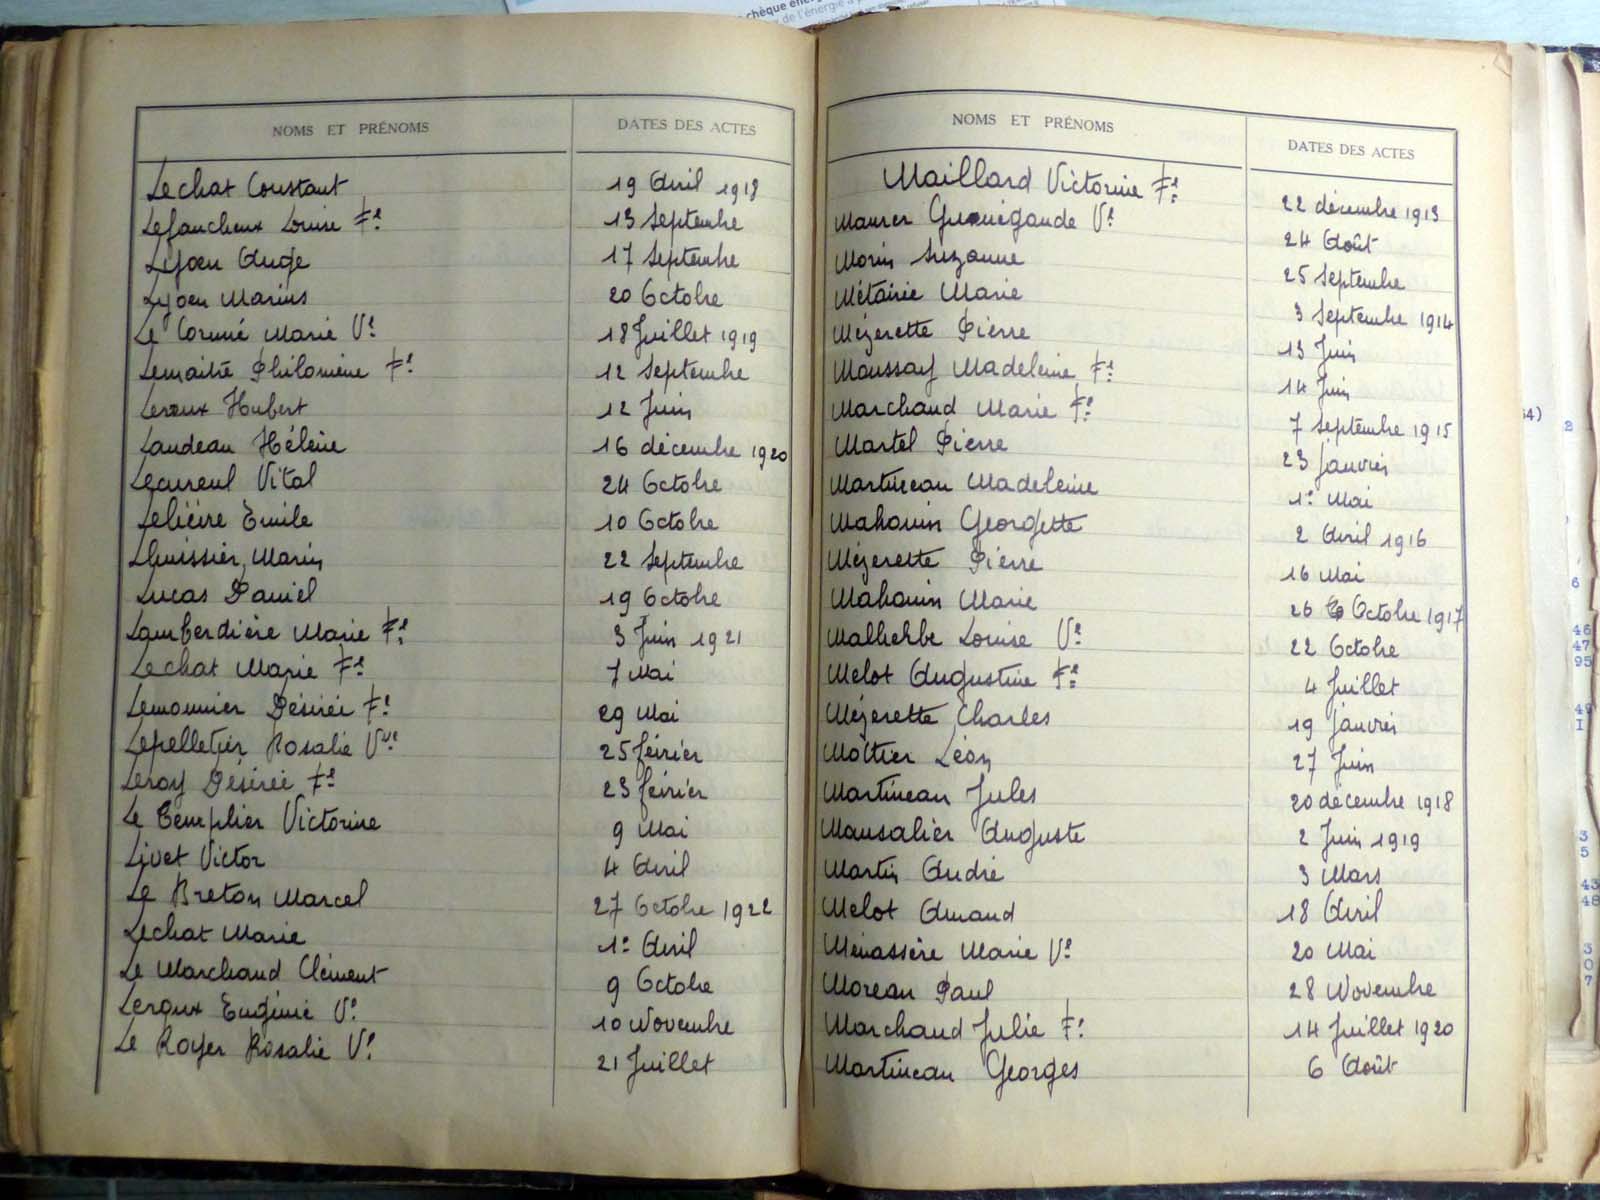 chèque éner
de l'énergie à
NOMS ET PRÉNOMS DATES DES ACTES
Lechat Constant 19 Avril 1918
Lefaucheux Louise Fe 13 Septembre
Lejoen Ange 17 Septembre
Lejoen Marius 20 Octobre
Le Cornué Marie Ve 18 Juillet 1919
Lemaitre Philomène Fe 12 Septembre
Leroux Hubert 12 Juin
Landeau Hélène 16 décembre 1920
Lecureul Vital 24 Octobre
Lelièvre Emile 10 Octobre
Lhuissier Marin 22 Septembre
Lucas Daniel 19 Octobre
Lamberdière Marie Fe 3 Juin 1921
Lechat Marie Fe 7 Mai
Lemonnier Désirée Fe 29 Mai
Lepelletier Rosalie Vve 25 février
Leroy Désirée Fe 23 février
Le Templier Victorine 9 Mai
Livet Victor 4 Avril
Le Breton Marcel 27 Octobre 1922
Lechat Marie 1e Avril
Le Marchand Clément 9 Octobre
Leroux Eugénie Ve 10 Novembre
Le Royer Rosalie Ve 21 Juillet
NOMS ET PRÉNOMS DATES DES ACTES
Maillard Victorine Fe 22 décembre 1913
Maurer Guénégande Ve 24 Août
Morin Suzanne 25 Septembre
Métairie Marie 3 Septembre 1914
Mézerette Pierre 13 Juin
Moussay Madeleine Fe 14 Juin
Marchand Marie Fe 7 Septembre 1915
Martel Pierre 23 janvier
Martineau Madeleine 1e Mai
Mahouin Georgette 2 Avril 1916
Mézerette Pierre 16 Mai
Mahouin Marie 26 Octobre 1917
Malherbe Louise Ve 22 Octobre
Melot Augustine Fe 4 Juillet
Mézerette Charles 19 janvier
Mottier Léon 27 Juin
Martineau Jules 20 décembre 1918
Mausalier Auguste 2 Juin 1919
Martin André 3 Mars
Melot Amand 18 Avril
Ménassère Marie Ve 20 Mai
Moreau Paul 28 Novembre
Marchand Julie Fe 14 Juillet 1920
Martineau Georges 6 Août
54)
2
6
46
47
95
49
I
3
5
43
48
3
0
7